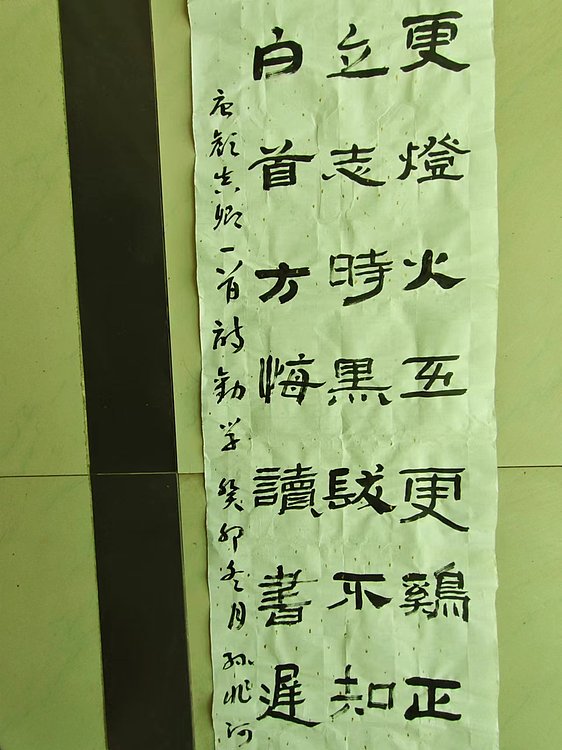 更燈火五更鷄正
立志時黑髮不知
白首方悔讀書遲
唐颜真卿一首詩勸学癸卯冬月孙